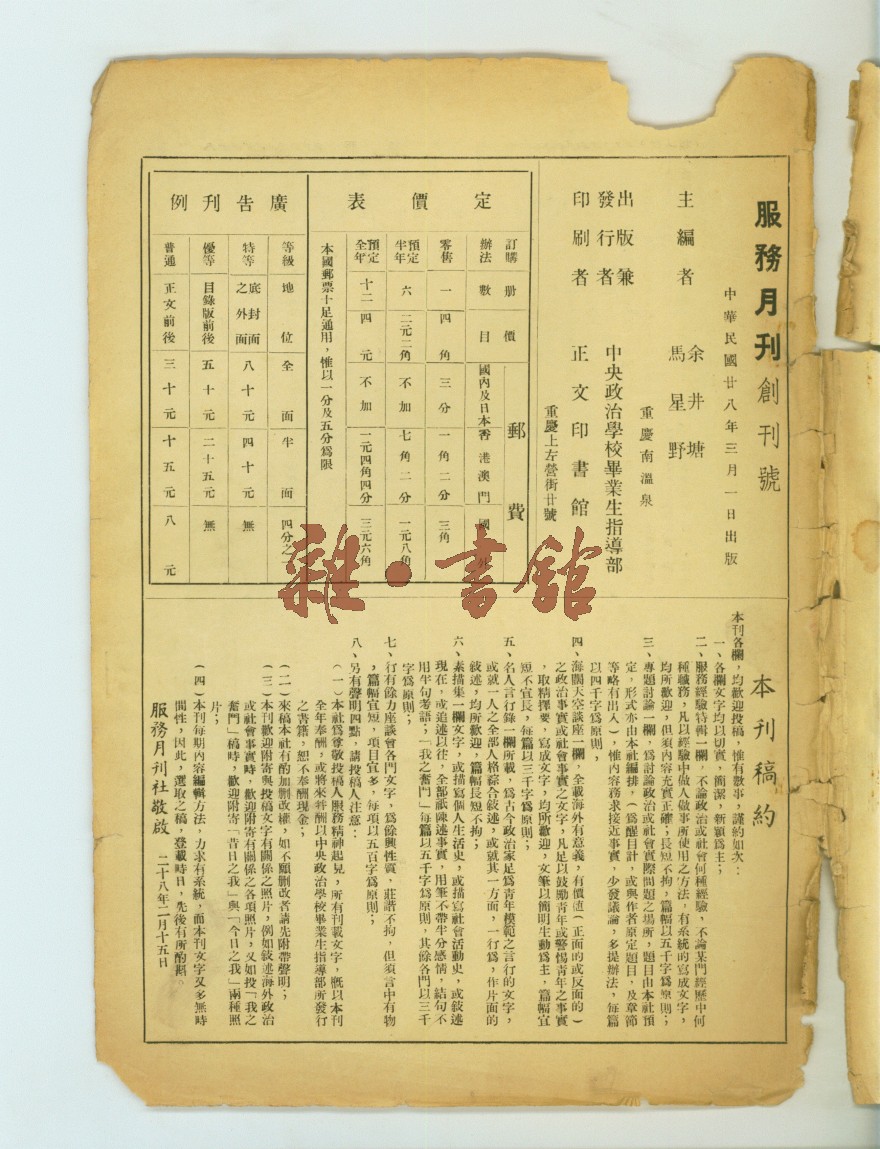 服務月刊創刊號
中華民國廿八年三月一日出版
主編者 余井塘
馬星野
重慶南溫泉
出版兼發行者 中央政治學校畢業生指導部
印刷者 正文印書館
重慶上左營街廿號
定價表
訂購辦法 冊數 價目 郵費
國內及日本 香港澳門 國外
零售 一 四角 三分 一角二分 三角
預定半年 六 二元二角 不加 七角二分 一元八角
預定全年 十二 四元 不加 一元四角四分 三元六角
本國郵票十足通用,惟以一分及五分爲限
廣告刊例
等級 地位 全面 半面 四分之一
特等 底封面之外面 八十元 四十元 無
優等 目錄版前後 五十元 二十五元 無
普通 正文前後 三十元 十五元 八元
本刊稿約
本刊各欄,均歡迎投稿,惟有數事,謹約如次:
一、各欄文字均以切實,簡潔,新穎爲主;
二、服務經驗特輯一欄,不論政治或社會何種經驗,不論某門經歷中何
種職務,凡以經驗中做人做事所使用之方法,有系統的寫成文字,
均所歡迎,但須內容充實正確;長短不拘,篇幅以五千字爲原則;
三、專題討論一欄,爲討論政治或社會實際問題之場所,題目由本社預
定,形式亦由本社編排,(爲醒目計,或與作者原定題目,及章節
等略有出入),惟內容務求接近事實,少發議論,多提辦法,每篇
以四千字爲原則;
四、海闊天空談座一欄,全載海外有意義,有價值(正面的或反面的)
之政治事實或社會事實之文字,凡足以鼓勵靑年或警惕靑年之事實
,取精擇要,寫成文字,均所歡迎,文筆以簡明生動爲主,篇幅宜
短不宜長,每篇以三千字爲原則;
五、名人言行錄一欄所載,爲古今政治家足爲靑年模範之言行的文字,
或就一人之全部人格綜合敘述,或就其一方面,一行爲,作片面的
敘述,均所歡迎,篇幅長短不拘;
六、素描集一欄文字,或描寫個人生活史,或描寫社會活動史,或敘述
現在,或追述以往,全部祇陳述事實,用筆不帶半分感情,結句不
用半句考語;「我之奮鬥」每篇以五千字爲原則,其餘各門以三千
字爲原則;
七、行有餘力座談會各門文字,爲餘興性質,莊諧不拘,但須言中有物
,篇幅宜短,項目宜多,每項以五百字爲原則;
八、另有聲明四點,請投稿人注意:
(一)本社爲尊敬投稿人服務精神起見,所有刊載文字,槪以本刊
全年奉酬,或將來幷酬以中央政治學校畢業生指導部所發行
之書籍,恕不奉酬現金;
(二)來稿本社有酌加刪改權,如不願刪改者請先附帶聲明;
(三)本刊歡迎附寄與投稿文字有關係之照片,例如敘述海外政治
或社會事實時,歡迎附寄有關係之各項照片,又如投「我之
奮鬥」稿時,歡迎附寄「昔日之我」與「今日之我」兩種照
片;
(四)本刊每期內容編輯方法,力求有系統,而本刊文字又多無時
間性,因此,選取之稿,登載時日,先後有所酌期。
服務月刊社敬啟 二十八年二月十五日
雜·書館